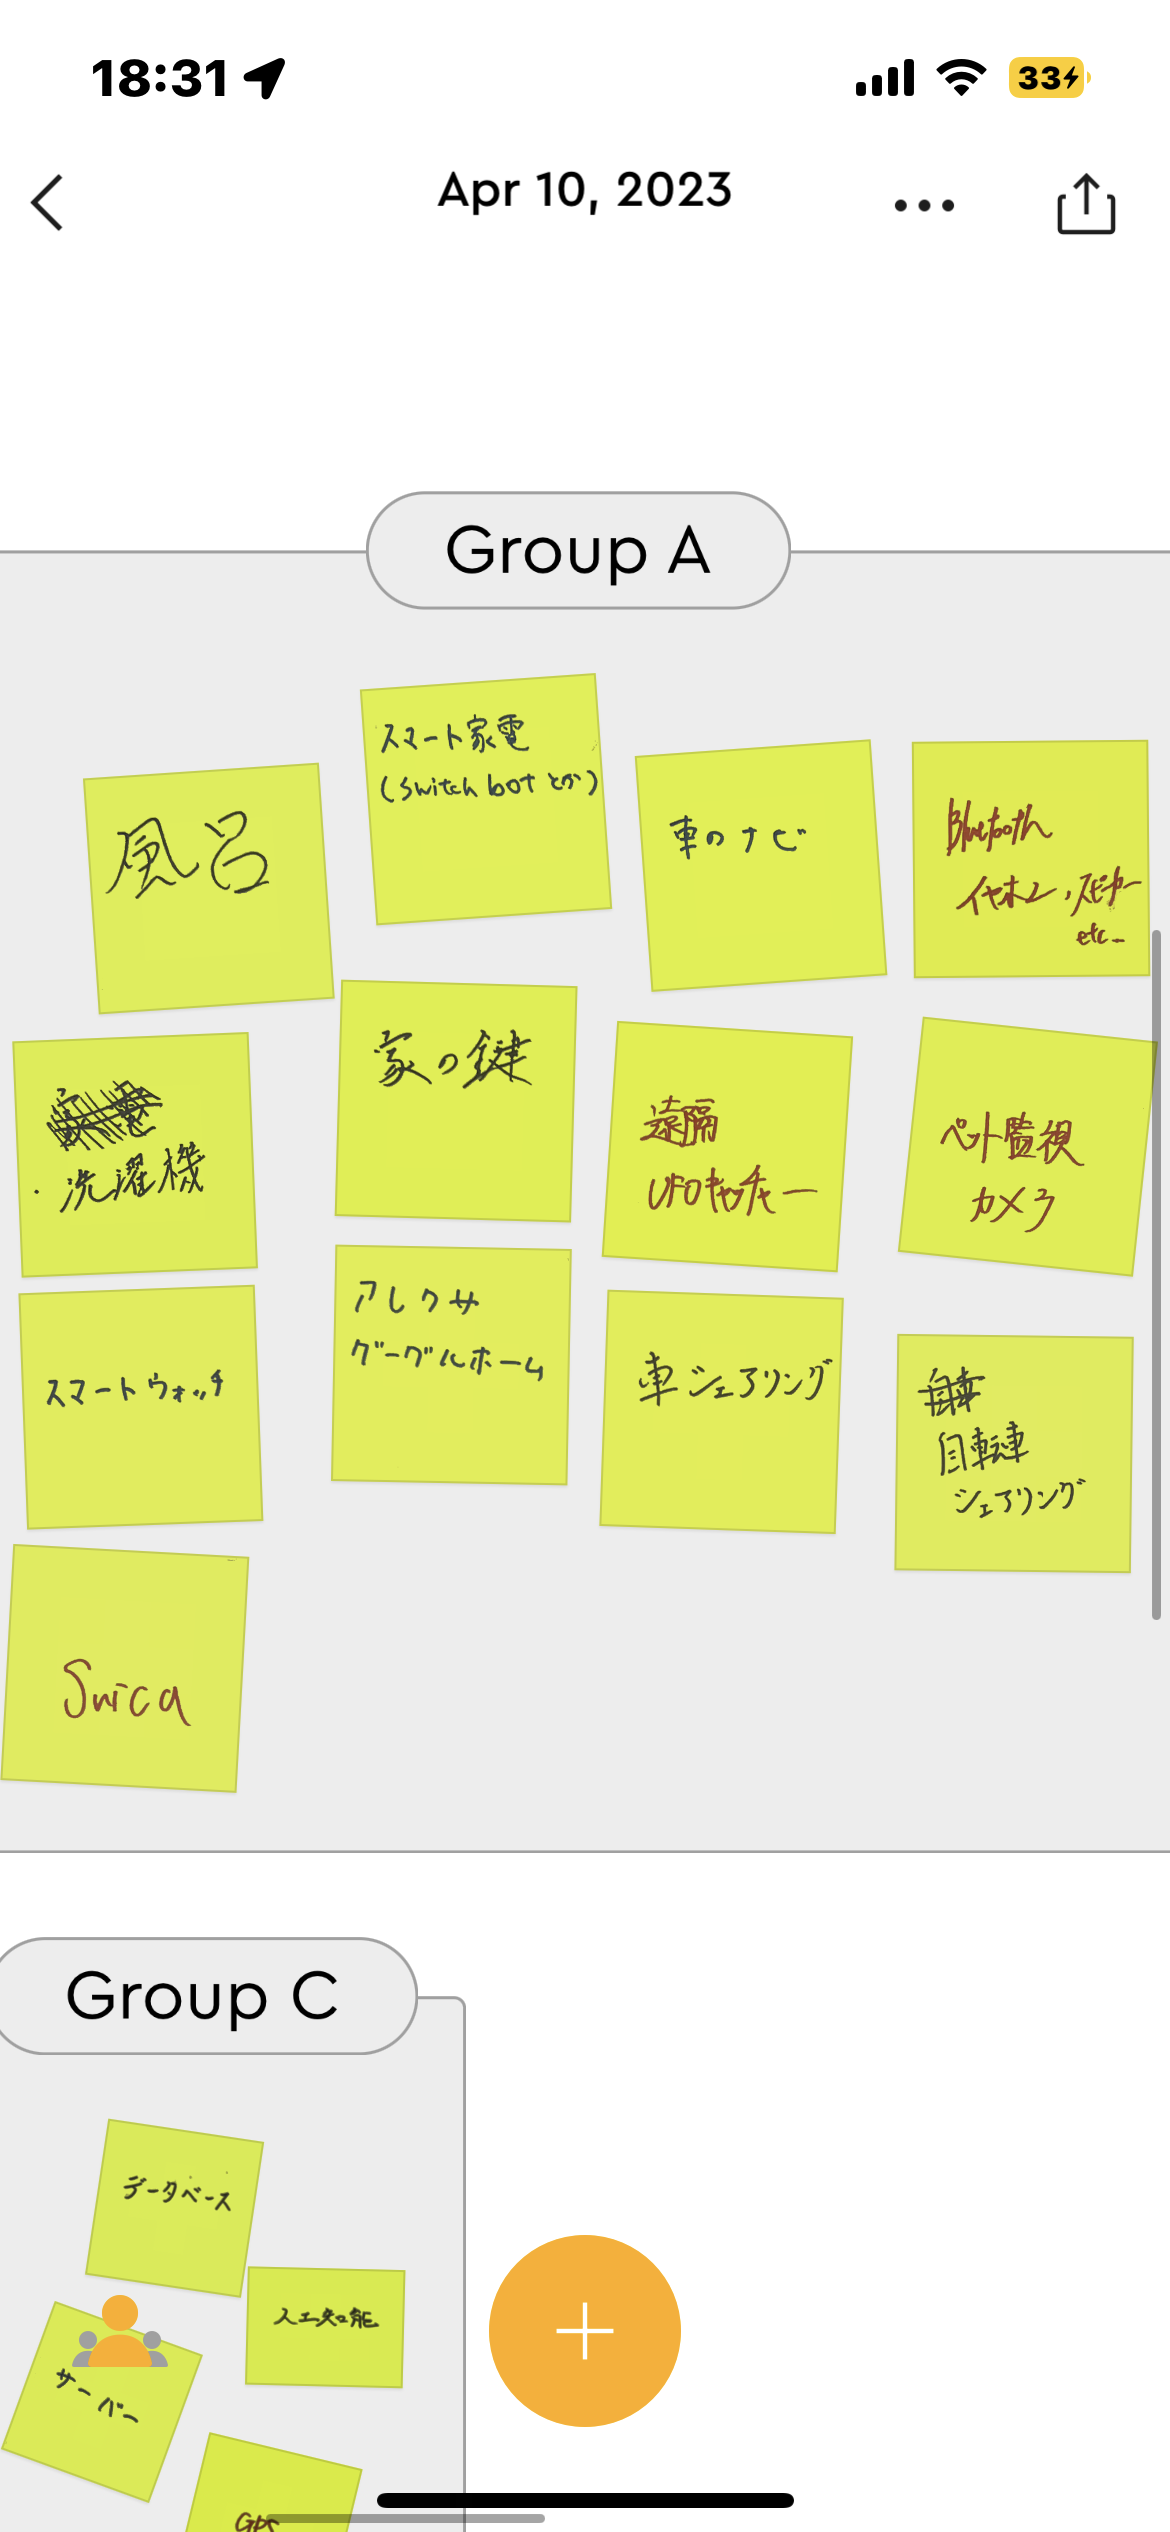 18:31
33
Apr 10, 2023
Group A
風呂
スマート家電
(switch bot とか)
車のナビ
Bluetooth
イヤホン, スピーカー
etc...
洗濯機
家の鍵
遠隔
UFOキャッチャー
ペット監視
カメラ
スマートウォッチ
アレクサ
グーグルホーム
車シェアリング
自転車
シェアリング
Suica
Group C
データベース
人工知能
サーバー
GPS